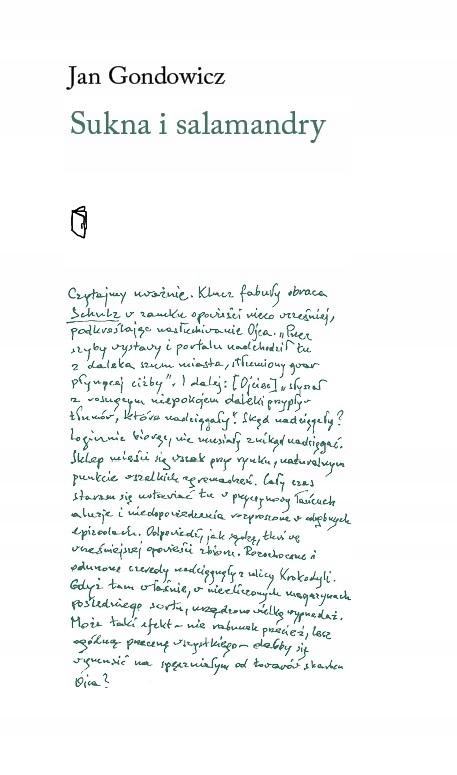 Jan Gondowicz
Sukna i salamandry
Czytajmy uważnie. Klucz fabuły obraca
Schulz w zamku opowieści nieco wcześniej,
podkreślając nasłuchiwanie Ojca. „Przez
szyby wystawy i portalu nadchodził tu
z daleka szum miasta, stłumiony gwar
płynącej ciżby”. I dalej: [Ojciec] „słyszał
z rosnącym niepokojem daleki przypływ
tłumów, które nadciągały”. Skąd nadciągały?
Logicznie biorąc, nie musiały znikąd nadciągać.
Sklep mieści się wszak przy rynku, naturalnym
punkcie wszelkich zgromadzeń. Cały czas
staram się wotować tu w przyczynowy łańcuch
aluzje i niedopowiedzenia rozproszone w odrębnych
epizodach. Odpowiedź, jak sądzę, tkwi we
wcześniejszej opowieści zbioru. Rozochocone i
czeredy nadciągnęły z ulicy Krokodyli.
Gdyż tam właśnie, w niezliczonych magazynach
pośledniego sortu, urządzono wielką wyprzedaż.
Może taki efekt – nie rabunek przecież, lecz
ogólną przecenę wszystkiego – dałby się
wymusić na spęczniałym od towarów skarbcu
Ojca?